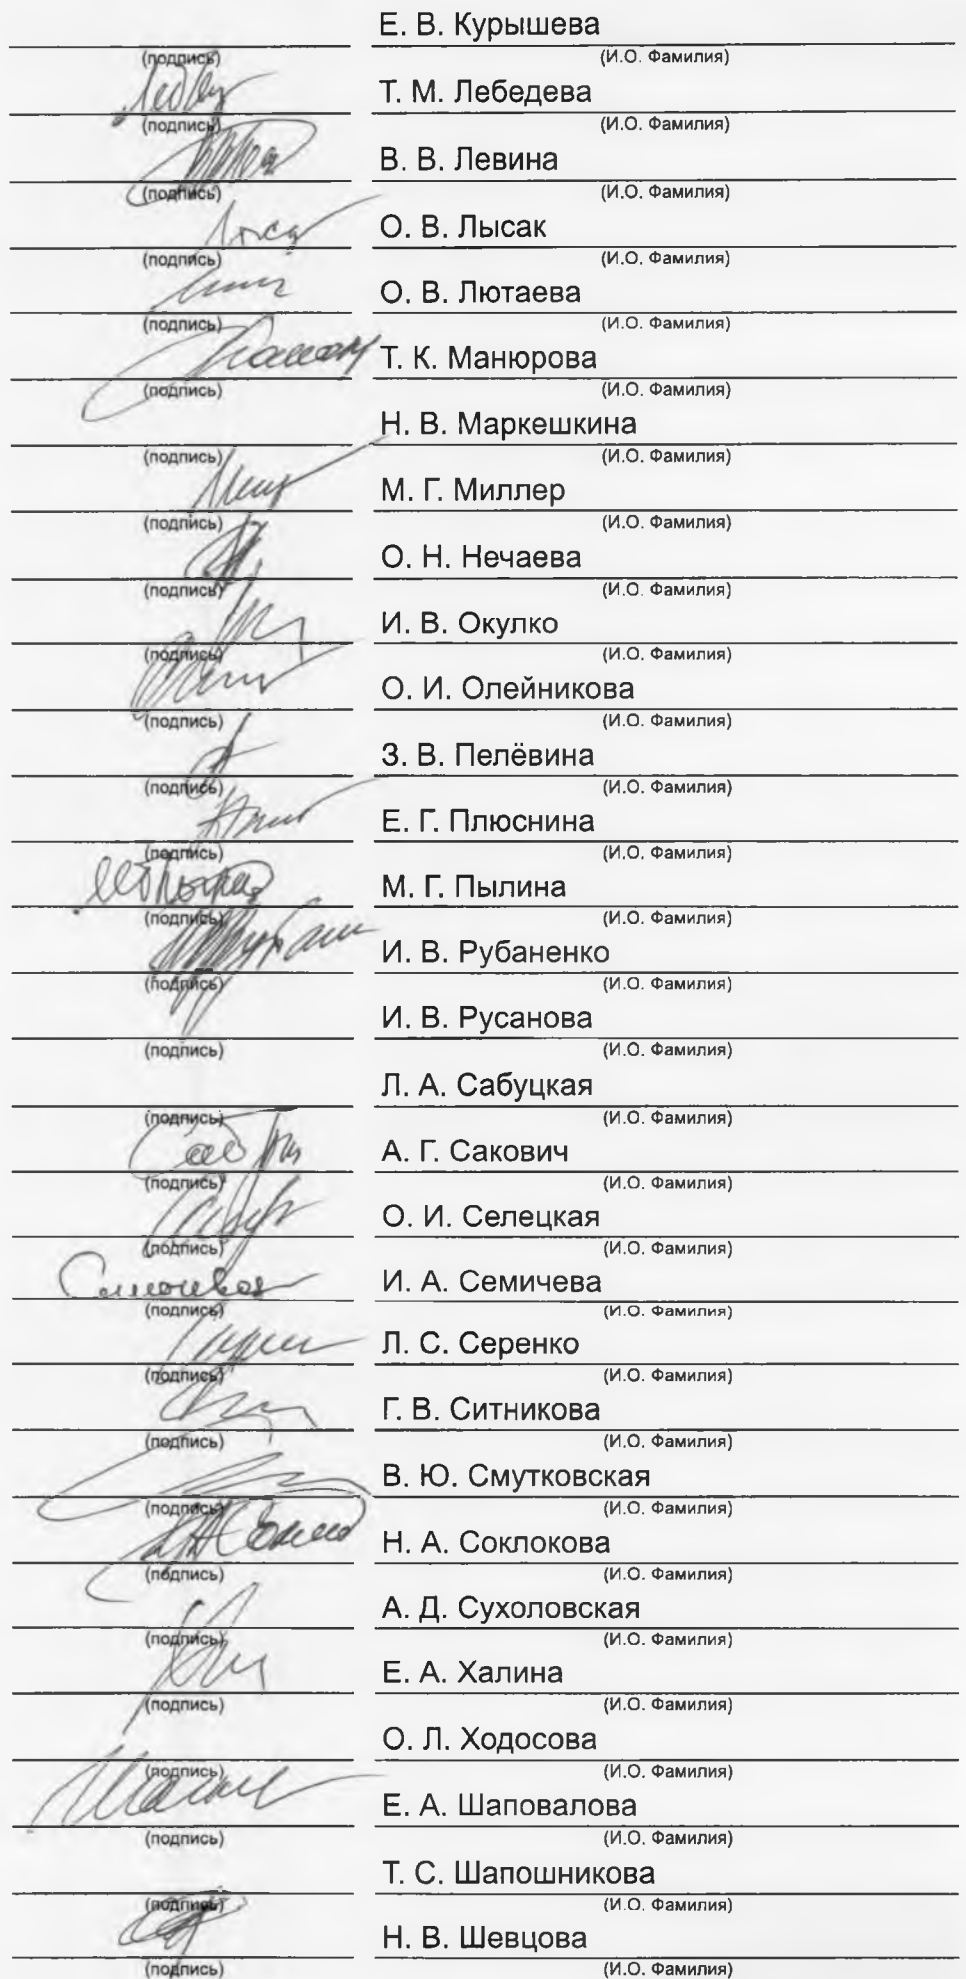 Е. В. Курышева
(подпись) (И.О. Фамилия)
Т. М. Лебедева
(подпись) (И.О. Фамилия)
В. В. Левина
(подпись) (И.О. Фамилия)
О. В. Лысак
(подпись) (И.О. Фамилия)
О. В. Лютаева
(подпись) (И.О. Фамилия)
Т. К. Манюрова
(подпись) (И.О. Фамилия)
Н. В. Маркешкина
(подпись) (И.О. Фамилия)
М. Г. Миллер
(подпись) (И.О. Фамилия)
О. Н. Нечаева
(подпись) (И.О. Фамилия)
И. В. Окулко
(подпись) (И.О. Фамилия)
О. И. Олейникова
(подпись) (И.О. Фамилия)
З. В. Пелёвина
(подпись) (И.О. Фамилия)
Е. Г. Плюснина
(подпись) (И.О. Фамилия)
М. Г. Пылина
(подпись) (И.О. Фамилия)
И. В. Рубаненко
(подпись) (И.О. Фамилия)
И. В. Русанова
(подпись) (И.О. Фамилия)
Л. А. Сабуцкая
(подпись) (И.О. Фамилия)
А. Г. Сакович
(подпись) (И.О. Фамилия)
О. И. Селецкая
(подпись) (И.О. Фамилия)
И. А. Семичева
(подпись) (И.О. Фамилия)
Л. С. Серенко
(подпись) (И.О. Фамилия)
Г. В. Ситникова
(подпись) (И.О. Фамилия)
В. Ю. Смутковская
(подпись) (И.О. Фамилия)
Н. А. Соклокова
(подпись) (И.О. Фамилия)
А. Д. Сухоловская
(подпись) (И.О. Фамилия)
Е. А. Халина
(подпись) (И.О. Фамилия)
О. Л. Ходосова
(подпись) (И.О. Фамилия)
Е. А. Шаповалова
(подпись) (И.О. Фамилия)
Т. С. Шапошникова
(подпись) (И.О. Фамилия)
Н. В. Шевцова
(подпись) (И.О. Фамилия)